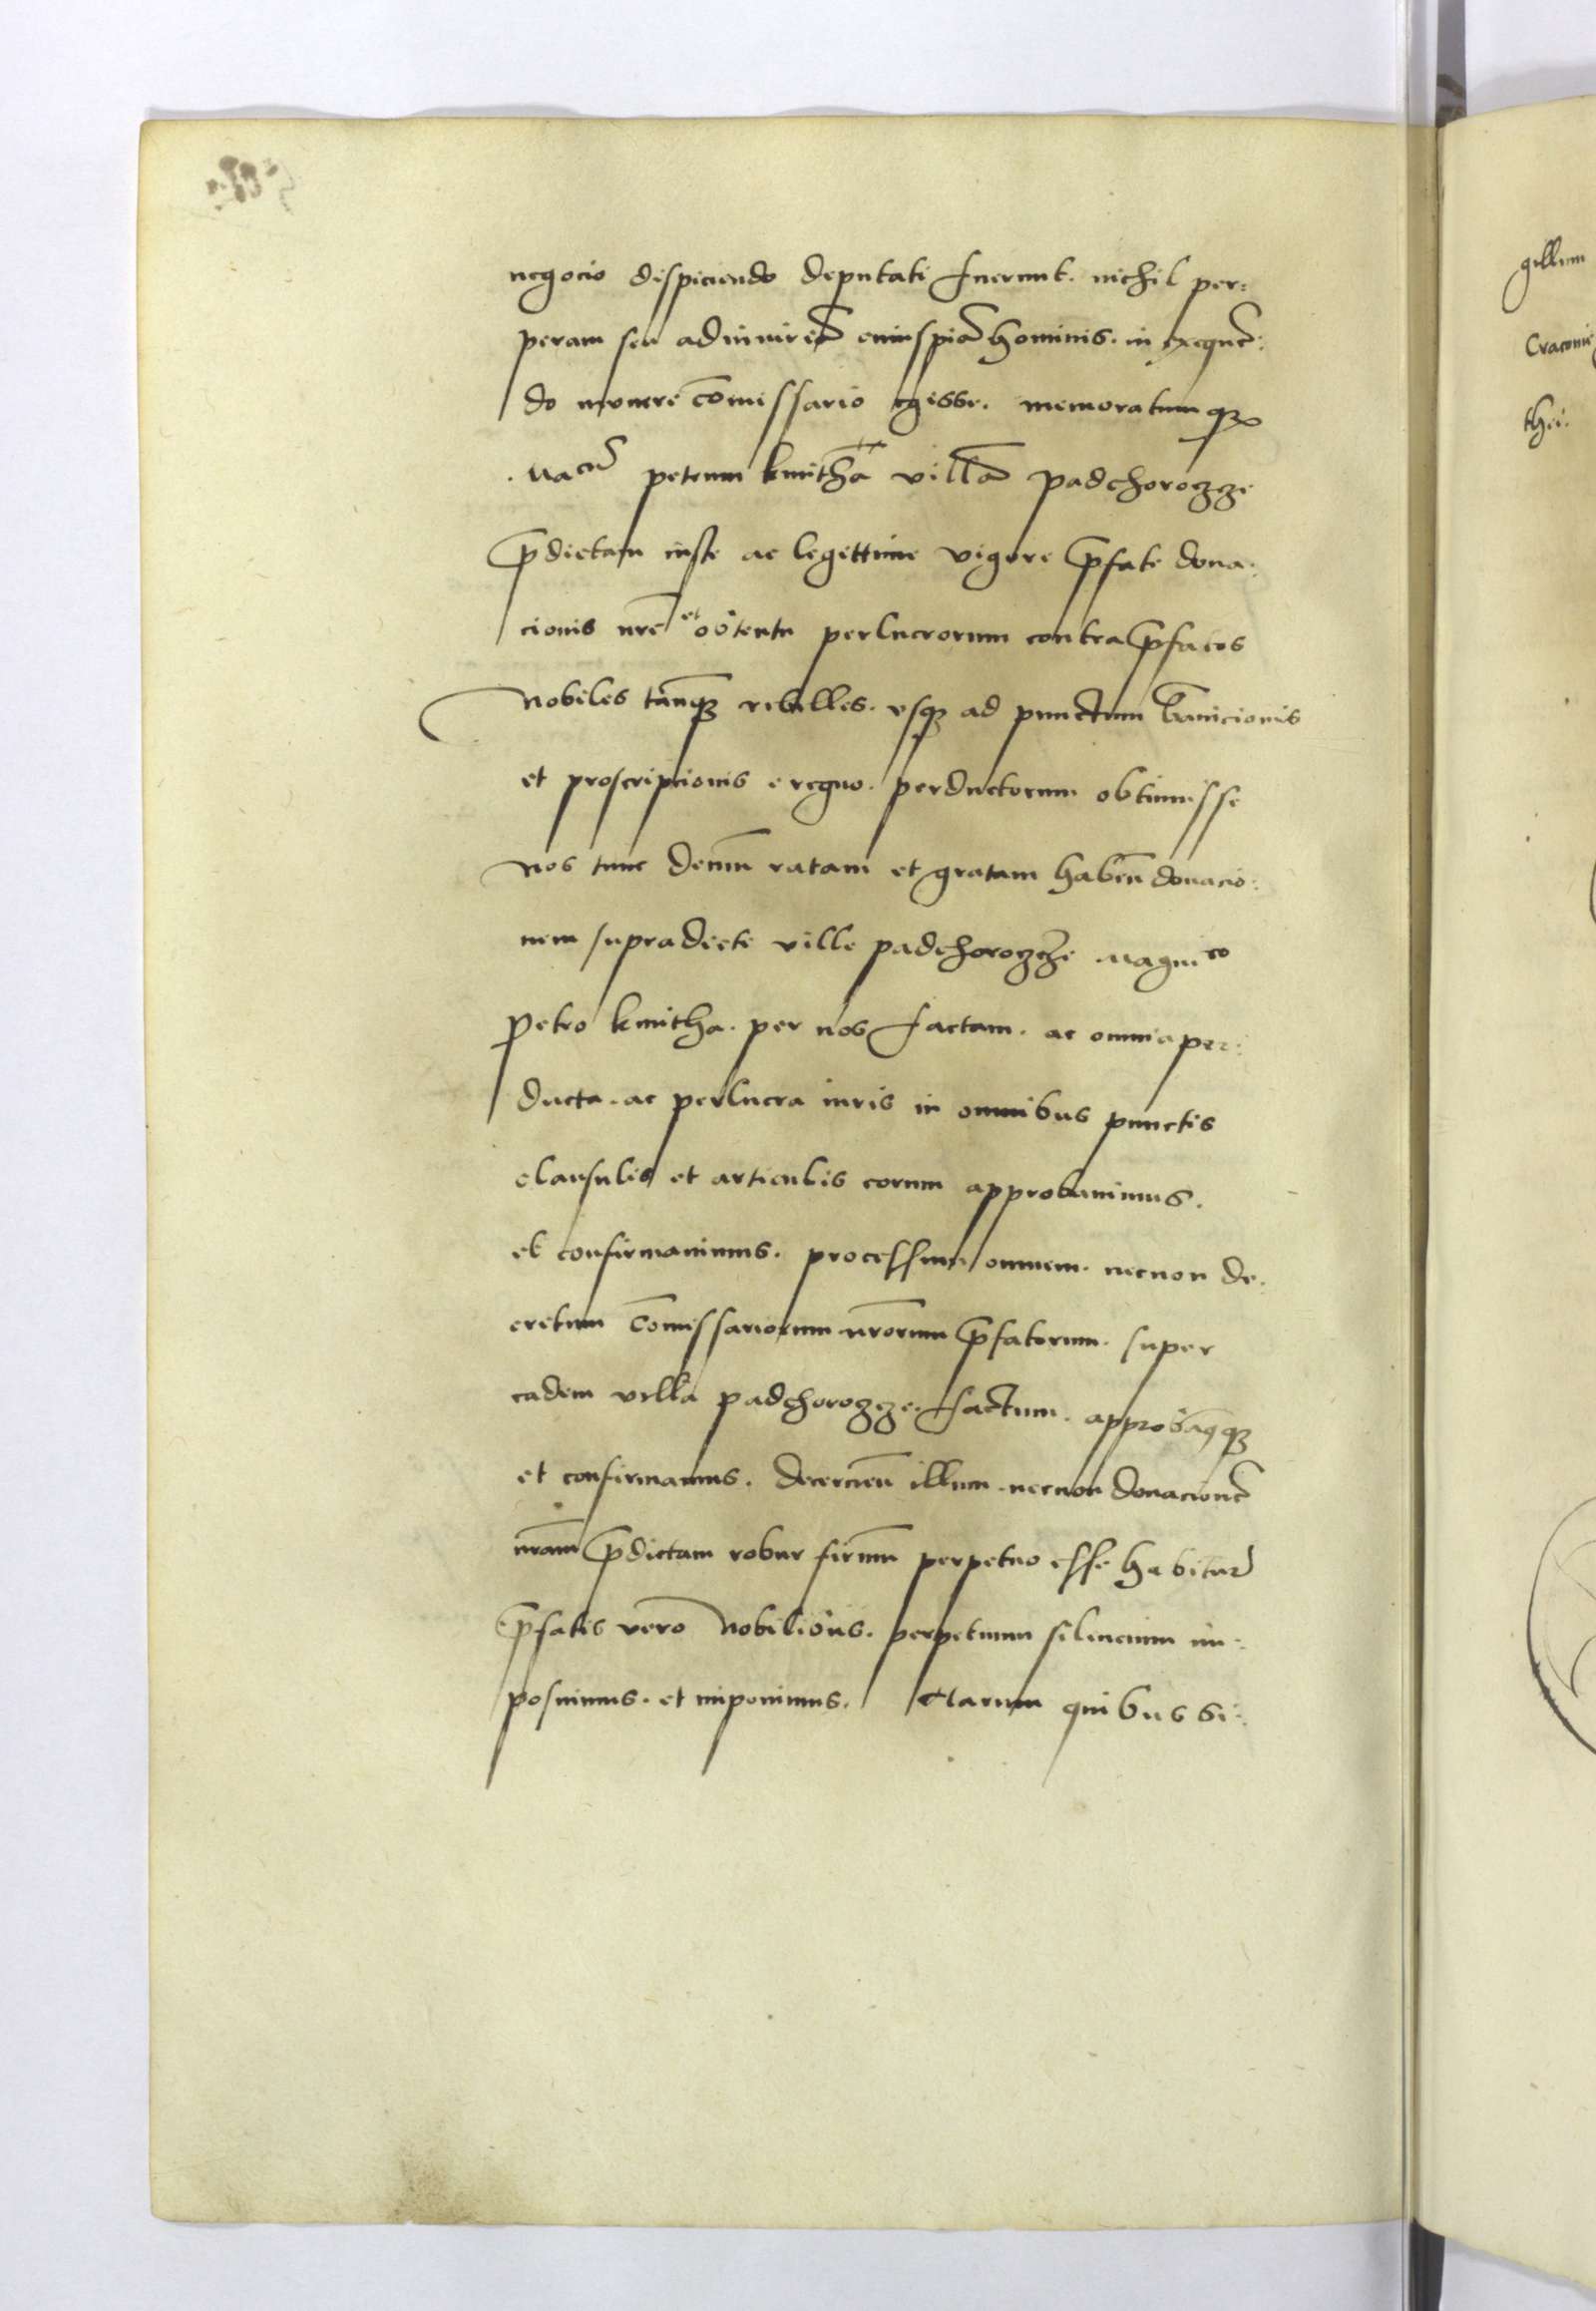 negocio dispiciendo deputati fuerunt. nichil per:
peram seu ad iniuriā cuiuspiā hominis. in exequē:
do munere cōmissario egisse. memoratumqꝫ
Magcū petrum kmithā villā padchorozze
p̄dictam iuste ac legittime vigore p̄fate dona:
cionis nr̄e et obtentu perlucrorum contra p̄fatos
Nobiles tanqꝫ rebelles. vsqꝫ ad punctum bānicionis
et proscriptionis e regno. perductorum obtinuisse
Nos tunc demū ratam et gratam habeñ donacio:
nem supradicte ville padchorozze Magnico
Petro kmitha. per nos factam. ac omnia per:
ducta. ac perlucra iuris in omnibus punctis
clausulis et articulis eorum approbauimus.
et confirmauimus. processum omnem. necnon de:
cretum cōmissariorum nr̄orum p̄fatorum. super
eadem villa padchorozze. factum. approbamqꝫ
et confirmamus. decerneñ illum. necnon donacionē
nr̄am p̄dictam robur firmū perpetuo esse habitur
p̄fatis vero Nobilibus. perpetuum silencium im:
posuimus. et imponimus. Harum quibus si:
gillum
Cracouie
thei.